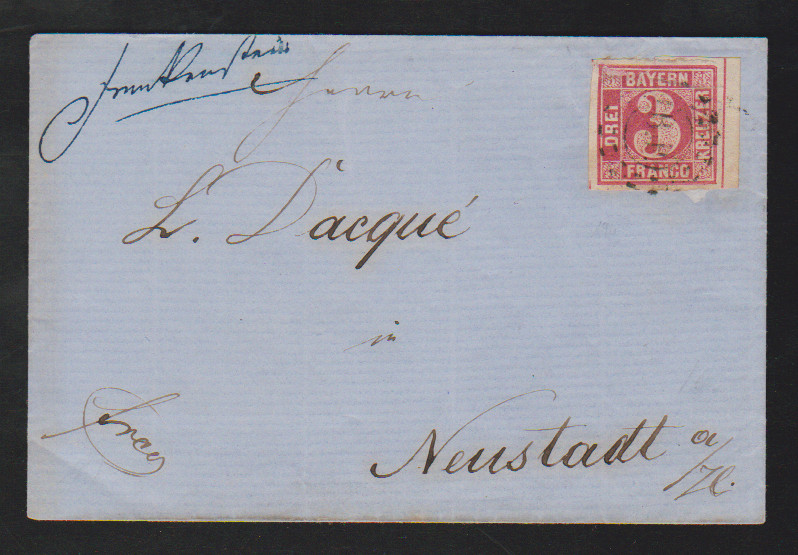 Frankenstein
Herrn
BAYERN
DREI
3
KREUZER
FRANCO
L. Dacqué
in
Neustadt a/H.
franco